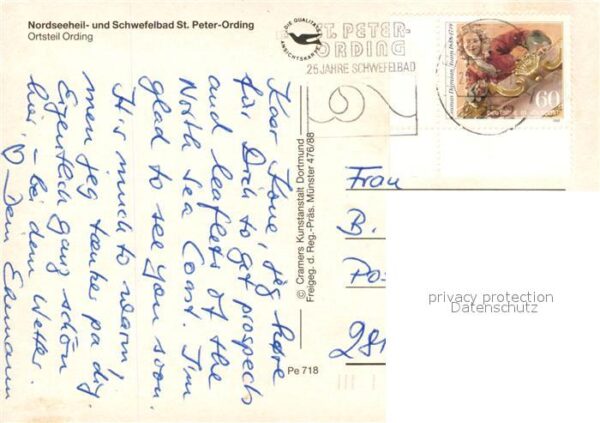 Nordseeheil- und Schwefelbad St. Peter-Ording
Ortsteil Ording
DIE QUALITÄTS
ANSICHTSKARTE
ST. PETER-
ORDING
25 JAHRE SCHWEFELBAD
60
Kaer Kone, jeg hörte
für Dich to get prospects
and leaflets of the
North Sea Coast. I'm
glad to see you soon.
It's much to warm!
men jeg tænker pa dig.
Eigentlich ganz schön
hier – bei dem Wetter.
♡ Dein Edemann
© Cramers Kunstanstalt Dortmund
Freigeg. d. Reg.-Präs. Münster 476/88
Pe 718
Frau
B.
Po
281
privacy protection
Datenschutz